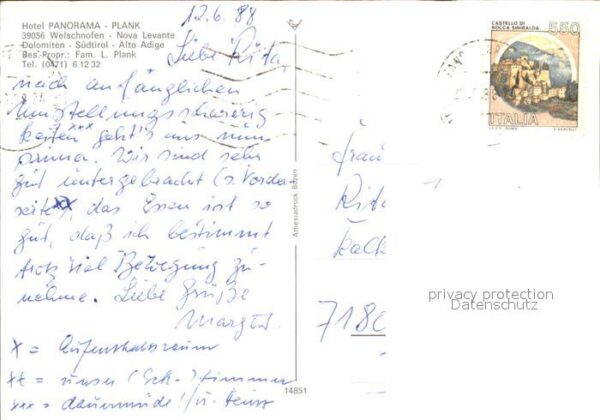 Hotel PANORAMA - PLANK
39056 Welschnofen - Nova Levante
Dolomiten - Südtirol - Alto Adige
Bes.-Propr.: Fam. L. Plank
Tel. (0471) 6 12 32
12.6.88
Liebe Rita,
nach anfänglichen
Umstellungsschwierig-
keiten xxx geht's uns nun
prima. Wir sind sehr
gut untergebracht (s. Vorder-
seite xx, das Essen ist so
gut, daß ich bestimmt
trotz viel Bewegung zu-
nehme. Liebe Grüße
Margit.
x = Aufenthaltsraum
xx = unser (Eck-) Zimmer
xxx = dauermüde! /u.
Athesiadruck Bozen
14851
CASTELLO DI
ROCCA SINIBALDA
550
ITALIA
I.P.Z.S. ROMA
Frau
Rita
Kalk
7180
privacy protection
Datenschutz